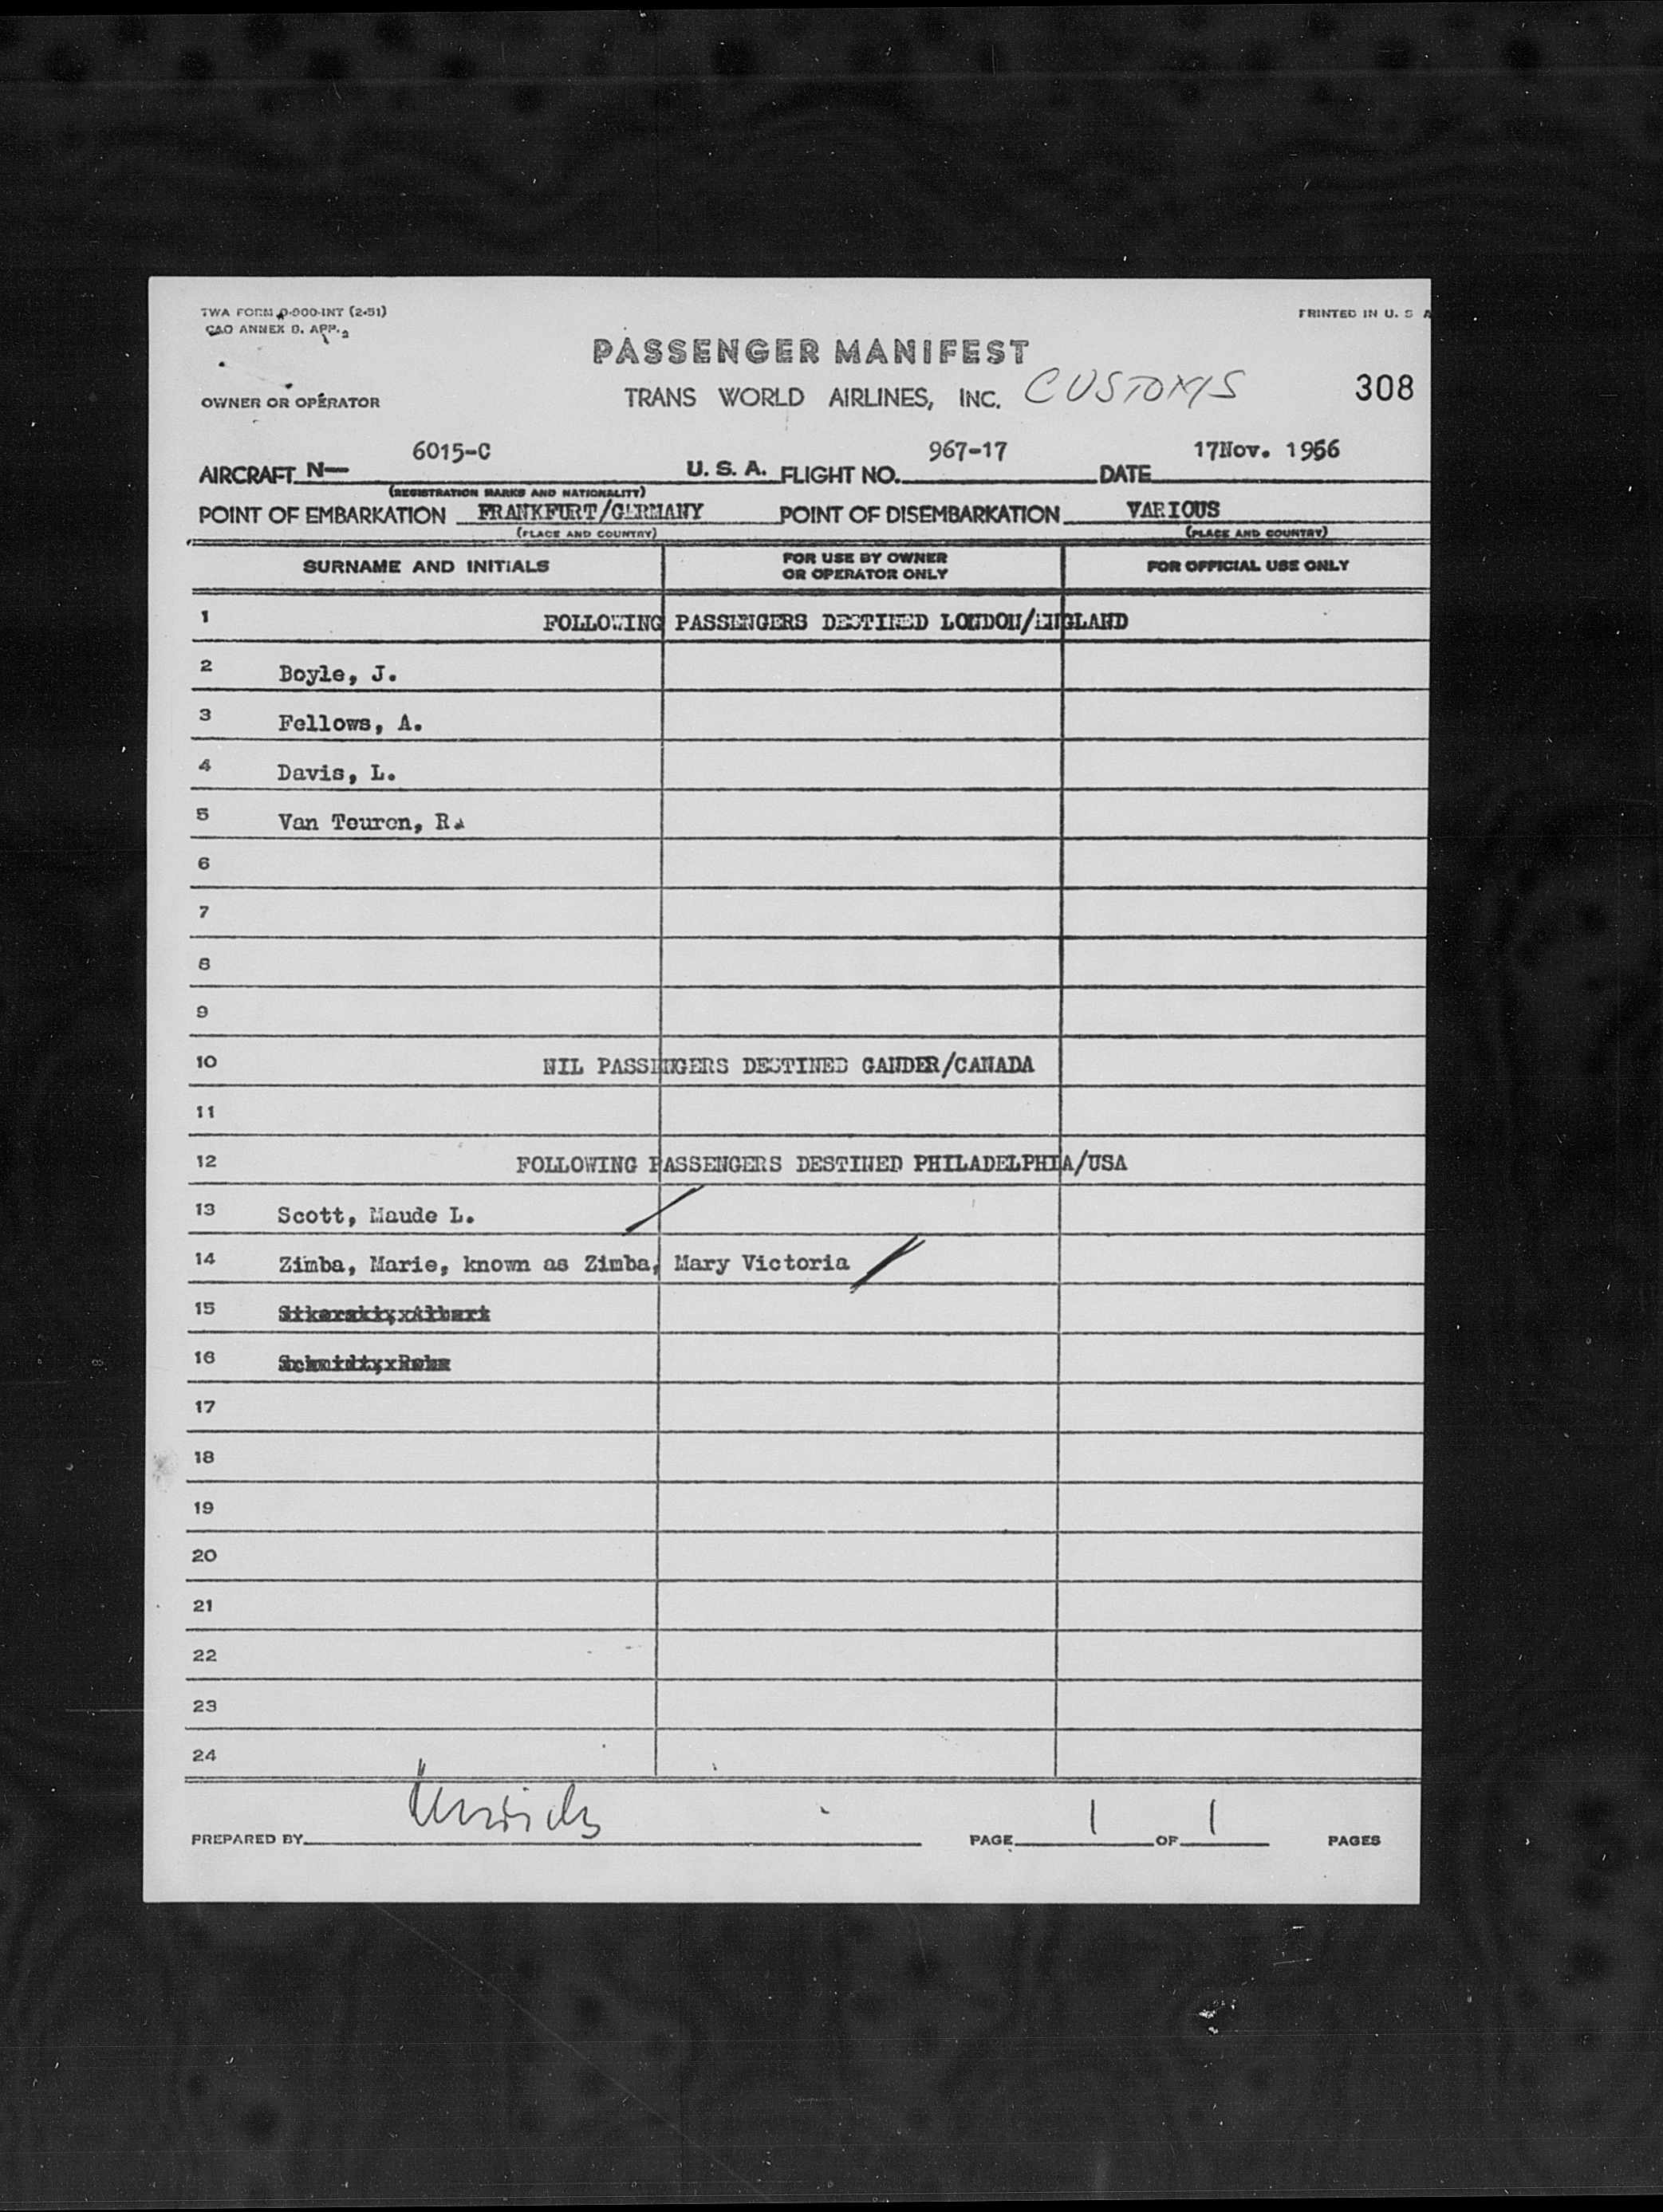 TWA FORM O-900-INT (2-51)
PRINTED IN U. S A
CAO ANNEX 9. APP. 2
PASSENGER MANIFEST
OWNER OR OPERATOR
TRANS WORLD AIRLINES, INC. CUSTOMS 308
6015-C 967-17 17Nov. 1956
AIRCRAFT N— U. S. A. FLIGHT NO. DATE
(REGISTRATION MARKS AND NATIONALITY)
POINT OF EMBARKATION FRANKFURT/GERMANY POINT OF DISEMBARKATION VARIOUS
(PLACE AND COUNTRY) (PLACE AND COUNTRY)
SURNAME AND INITIALS FOR USE BY OWNER OR OPERATOR ONLY FOR OFFICIAL USE ONLY
1 FOLLOWING PASSENGERS DESTINED LONDON/ENGLAND
2 Boyle, J.
3 Fellows, A.
4 Davis, L.
5 Van Teuren, R.
6
7
8
9
10 NIL PASSENGERS DESTINED GANDER/CANADA
11
12 FOLLOWING PASSENGERS DESTINED PHILADELPHIA/USA
13 Scott, Maude L.
14 Zimba, Marie, known as Zimba, Mary Victoria
15
16
17
18
19
20
21
22
23
24
PREPARED BY PAGE 1 OF 1 PAGES